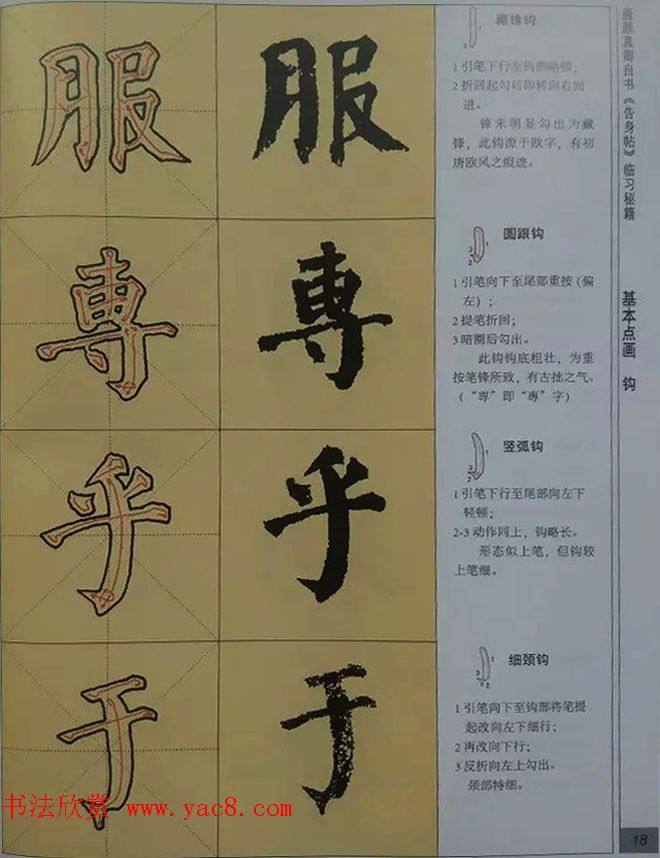 唐颜真卿自书《告身帖》临习秘籍
基本点画 钩
服 服
藏锋钩
1引笔下行至钩部略顿;
2折回起勾后即转向右回
进。
锋未明显勾出为藏
锋,此钩源于欧字,有初
唐欧风之痕迹。
專 專
圆跟钩
1引笔向下至尾部重按(偏
左);
2提笔折回;
3暗圈后勾出。
此钩钩底粗壮,为重
按笔锋所致,有古拙之气。
(“専”即“專”字)
乎 乎
竖弧钩
1引笔下行至尾部向左下
轻顿;
2-3动作同上,钩略长。
形态似上笔,但钩较
上笔细。
于 于
细颈钩
1引笔向下至钩部将笔提
起改向左下细行;
2再改向下行;
3反折向左上勾出。
颈部特细。
书法欣赏 www.yac8.com
18